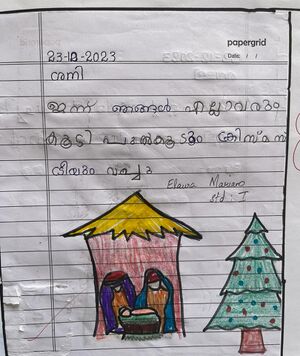 papergrid
Date: / /
23-12-2023
ശനി
ഇന്ന് ഞങ്ങൾ എല്ലാവരും
കൂടി പുൽക്കൂടും ക്രിസ്മസ്
ട്രീയും വച്ചു
Mariam
std : I